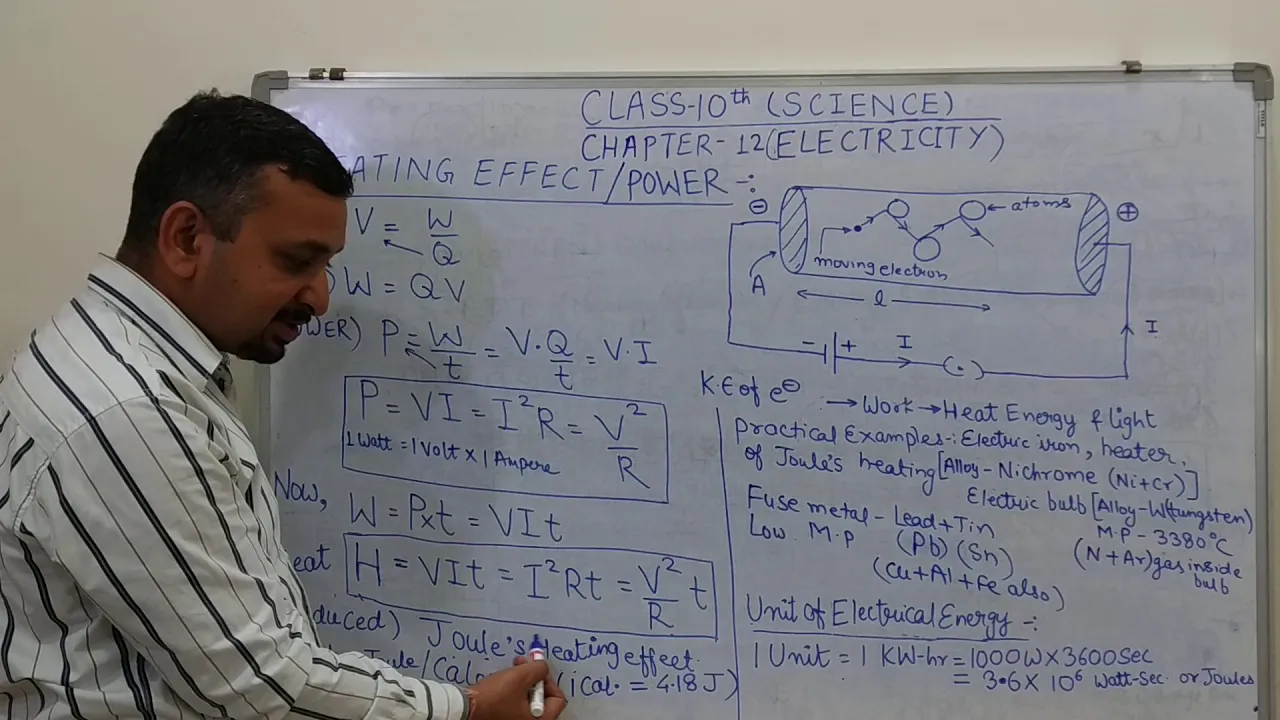 CLASS-10th (SCIENCE)
CHAPTER-12(ELECTRICITY)
ATING EFFECT/POWER -:
V = W/Q
W = QV
WER) P = W/t = V·Q/t = V·I
P = VI = I²R = V²/R
1 Watt = 1 Volt × 1 Ampere
Now, W = P×t = VIt
eat H = VIt = I²Rt = V²/R t
duced) Joule's Heating effect
Joule/ (1 Cal. = 4.18 J)
⊖ ⊕
← atoms
moving electron
A
l
I
- +
I
(·)
K.E of e⊖ → Work → Heat Energy & light
Practical Examples-: Electric iron, heater,
of Joule's heating [Alloy-Nichrome (Ni+Cr)]
Electric bulb [Alloy-W(tungsten)
M.P - 3380°C
(N+Ar) gas inside
bulb
Fuse metal - Lead+Tin
Low M.P (Pb) (Sn)
(Cu+Al+Fe also)
Unit of Electrical Energy -:
1 Unit = 1 KW-hr = 1000W×3600Sec
= 3.6×10⁶ Watt-Sec. or Joules